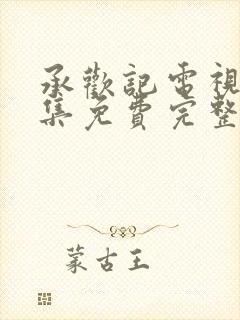 承歡記電視
集免費完整
蒙古王